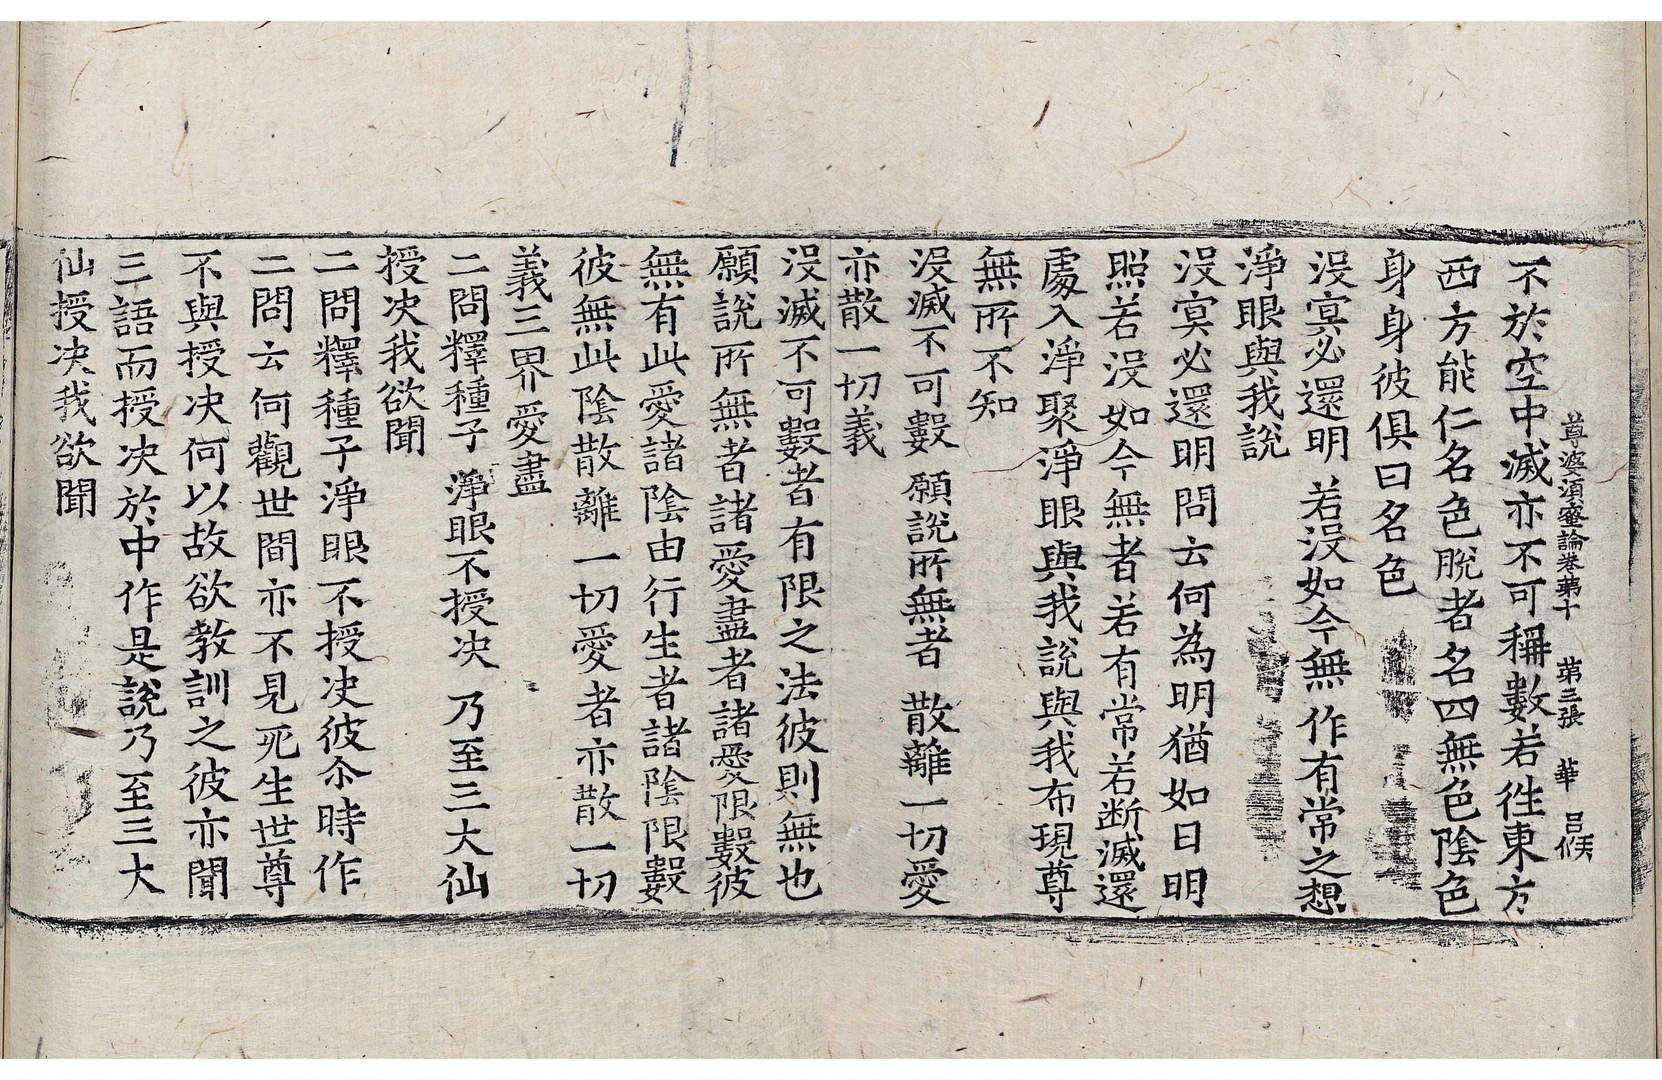 尊婆湏蜜論卷苐十　苐三張　華　吕候
不於空中滅亦不可稱數若徃東方
西方能仁名色脫者名四無色陰色
身身彼俱曰名色
没㝠必還明　若没如今無　作有常之想
淨眼與我說
没㝠必還明問云何為明猶如日明
照若没如今無者若有常若断滅還
處入淨聚淨眼與我說與我布現尊
無所不知
没滅不可數　願說所無者　散離一切愛
亦散一切義
没滅不可數者有限之法彼則無也
願說所無者諸愛盡者諸愛限數彼
無有此愛諸陰由行生者諸陰限數
彼無此陰散離一切愛者亦散一切
義三界愛盡
二問釋種子　淨眼不授决　乃至三大仙
授决我欲聞
二問釋種子淨眼不授决彼尒時作
二問云何觀世間亦不見死生世尊
不與授决何以故欲教訓之彼亦聞
三語而授决於中作是說乃至三大
仙授决我欲聞